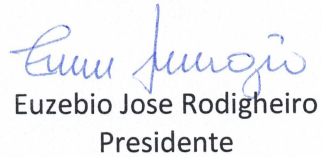 Euzebio Jose Rodigheiro
Presidente